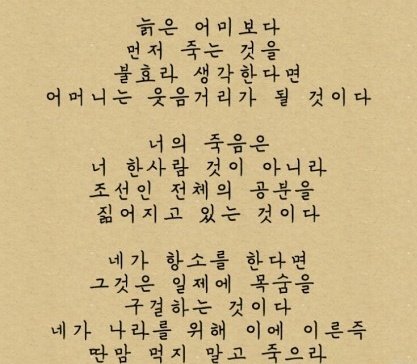 늙은 어미보다
먼저 죽는 것을
불효라 생각한다면
어머니는 웃음거리가 될 것이다
너의 죽음은
너 한사람 것이 아니라
조선인 전체의 공분을
짊어지고 있는 것이다
네가 항소를 한다면
그것은 일제에 목숨을
구걸하는 것이다
네가 나라를 위해 이에 이른즉
딴맘 먹지 말고 죽으라